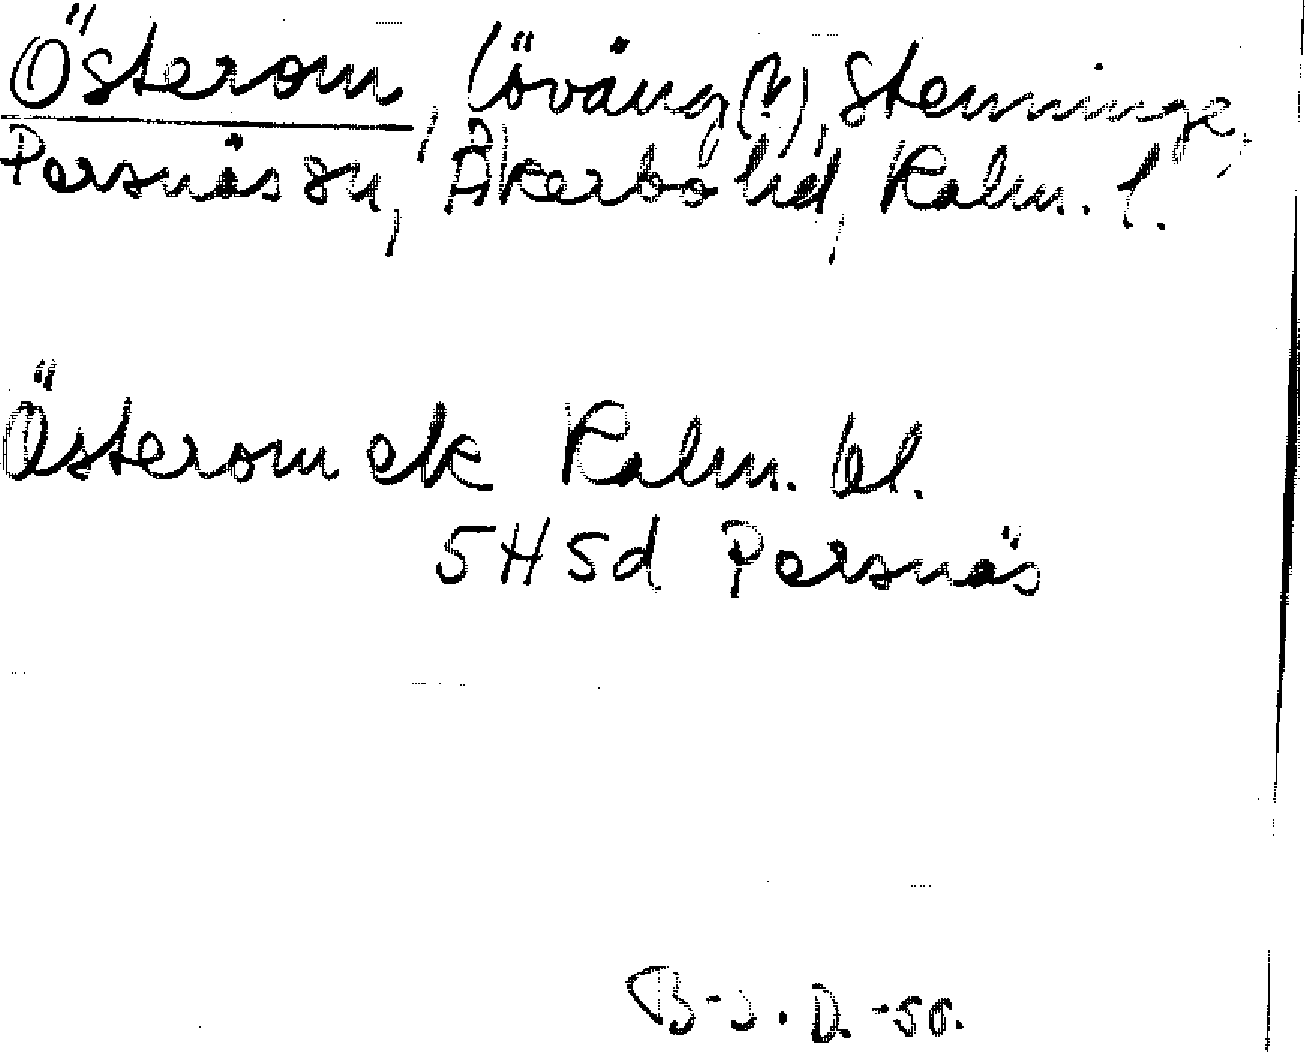 Österom, löväng(?), Stenninge,
Persnäs sn, Åkerbo hd, Kalm. l.
Österom ek Kalm. bl.
5H5d Persnäs
B-J. D. -50.